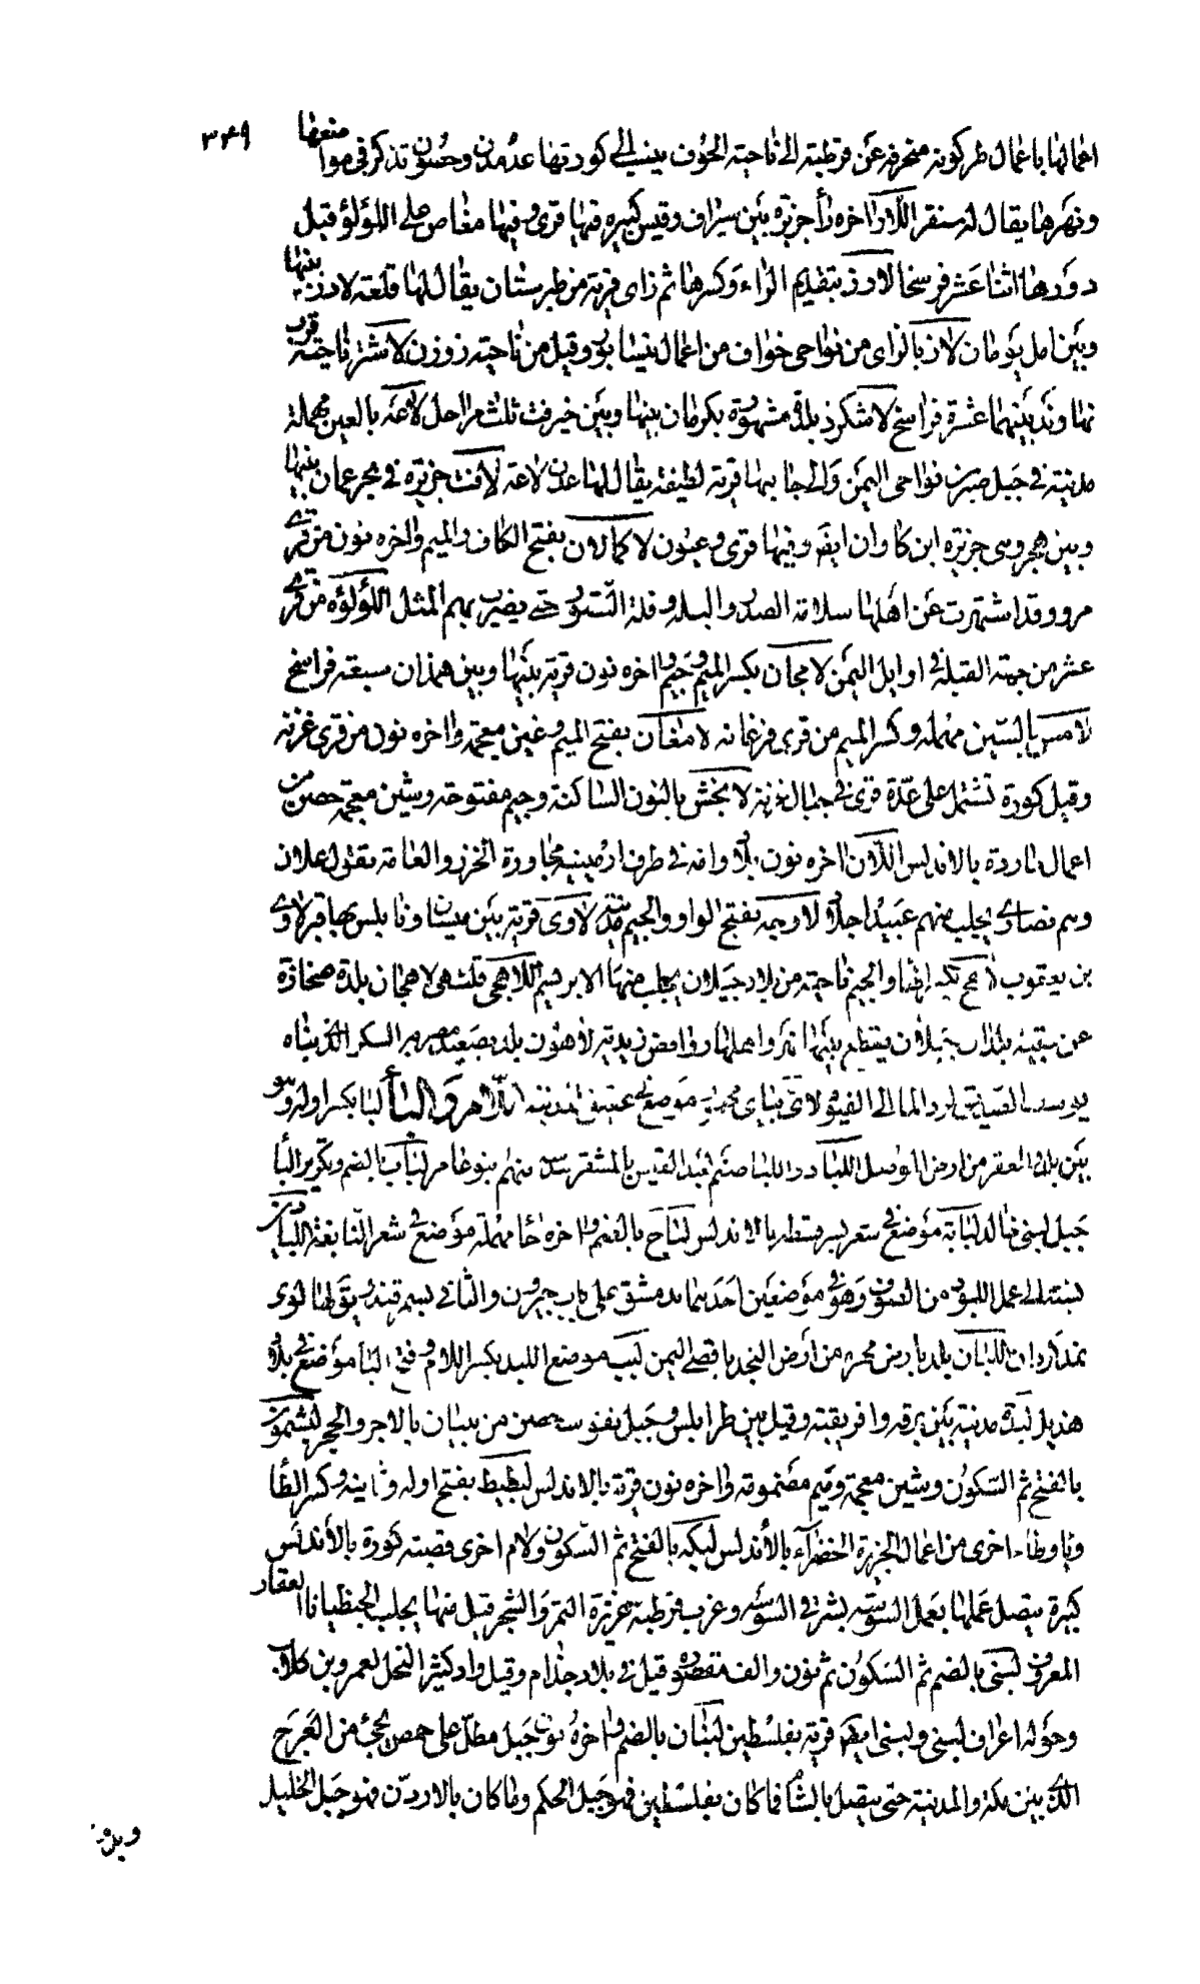 ٣٣٩
اعمالها باعمال طركونه منحرفه عن قرطبة الى ناحية الجوف ينسب الى كورتها عدة مدن وحصون تذكر فى مواضعها
ونهرها يقال له سنقر اللار اخره را جزيرة بين سيراف وقيس كبيره فيها قرى وفيها مغاص على اللؤلؤ قيل
دورها اثنا عشر فرسخا لارز بتقديم الراء وكسرها ثم زاى قرية من طبرستان يقال لها قلعة لارز بينها
وبين امل يومان لاز بالزاى من نواحى خواف من اعمال نيسابور وقيل من ناحية زوزن لاشتر ناحية قرب
نهاوند بينهما عشرة فراسخ لاشكرد بلدة مشهورة بكرمان بينها وبين جيرفت ثلث مراحل لاعه بالعين مهملة
مدينة فى جبل صبر من نواحى اليمن والى جانبها قرية لطيفة يقال لها عدن لاعة لافت جزيرة فى بحر عمان بينها
وبين هجر وهى جزيرة ابن كاوان ايضا وفيها قرى وعيون لاكمالان بفتح الكاف والميم واخره نون من قرى
مرو وقد اشتهرت عن اهلها سلامة الصدر والبله وقلة التصور حتى يضرب بهم المثل اللؤلؤه من قرى
عثر من جهة القبلة فى اوايل اليمن لامجان بكسر الميم وجيم واخره نون قرية بينها وبين همذان سبعة فراسخ
لامس بالسين مهمله وكسر الميم من قرى فرغانه لامغان بفتح الميم وغين معجمة واخره نون من قرى غزنه
وقيل كورة تشتمل على عدة قرى فى جبال غزنة لانجش بالنون الساكنة وجيم مفتوحة وشين معجمة حصن من
اعمال ماردة بالاندلس اللان اخره نون بلاد واسعه فى طرف ارمينيه مجاورة الخزر والعامة يقولون علان
وهم نصارى يجلب منهم عبيد اجلاد لاوجه بفتح الواو والجيم مدينة لاوى قرية بين بيسان ونابلس بها قبر لاوى
بن يعقوب لاهج بكسر الهاء والجيم ناحية من بلاد جيلان يجلب منها الابريسم اللاهجى قلت هى لاهجان بلدة منحازة
عن بقية بلدان جيلان لاهون بلد بصعيد مصر به السكر الذى بناه
يوسف الصديق لرد الما الى الفيوم موضع فى عقيق المدينة اللام والباء لبا بكسر اوله وهو
بين بلد والعقر من ارض الموصل اللبا صنم لعبد القيس بالمشقر سدنته منهم بنو عامر لباب بالضم وتكرير البا
جبل لبنى خالد لبابة موضع لباح بالضم واخره حا مهملة موضع فى شعر النابغة اللبادين
نسبة الى عمل اللبود من الصوف وهو فى موضعين احدهما بدمشق على باب جيرون والثانى بسمرقند
اللبان بلد بارض مهره من ارض النجد باقصى اليمن لبب موضع اللبد بكسر اللام وفتح البا موضع فى بلاد
هذيل لبدة مدينة بين برقه وافريقية وقيل بين طرابلس وجبل نفوسه حصن من بنيان بالاجر والحجر لبشمون
بالفتح ثم السكون وشين معجمة وميم مضمومة واخره نون قرية بالاندلس لبطيط بفتح اوله وثانيه وكسر الطا
ويا وطاء اخرى من اعمال الجزيرة الخضراء بالاندلس لبله بالفتح ثم السكون ولام اخرى قصبة كورة بالاندلس
كبيرة يتصل عملها بعمل وغرب قرطبة غزيرة الثمر والشجر قيل منها يجلب الجنطيانا العقار
المعروف لبنى بالضم ثم السكون ثم نون والف مقصورة قيل فى بلاد جذام وقيل واد كثير النخل لعمرو بن كلاب
وحوله اعراف لبنى ولبنى ايضا قرية بفلسطين لبنان بالضم واخره نون جبل مطل على حمص يجئ من العرج
الذى بين مكة والمدينة حتى يتصل بالشام فما كان بفلسطين فهو جبل الحكم وما كان بالاردن فهو جبل الخليل